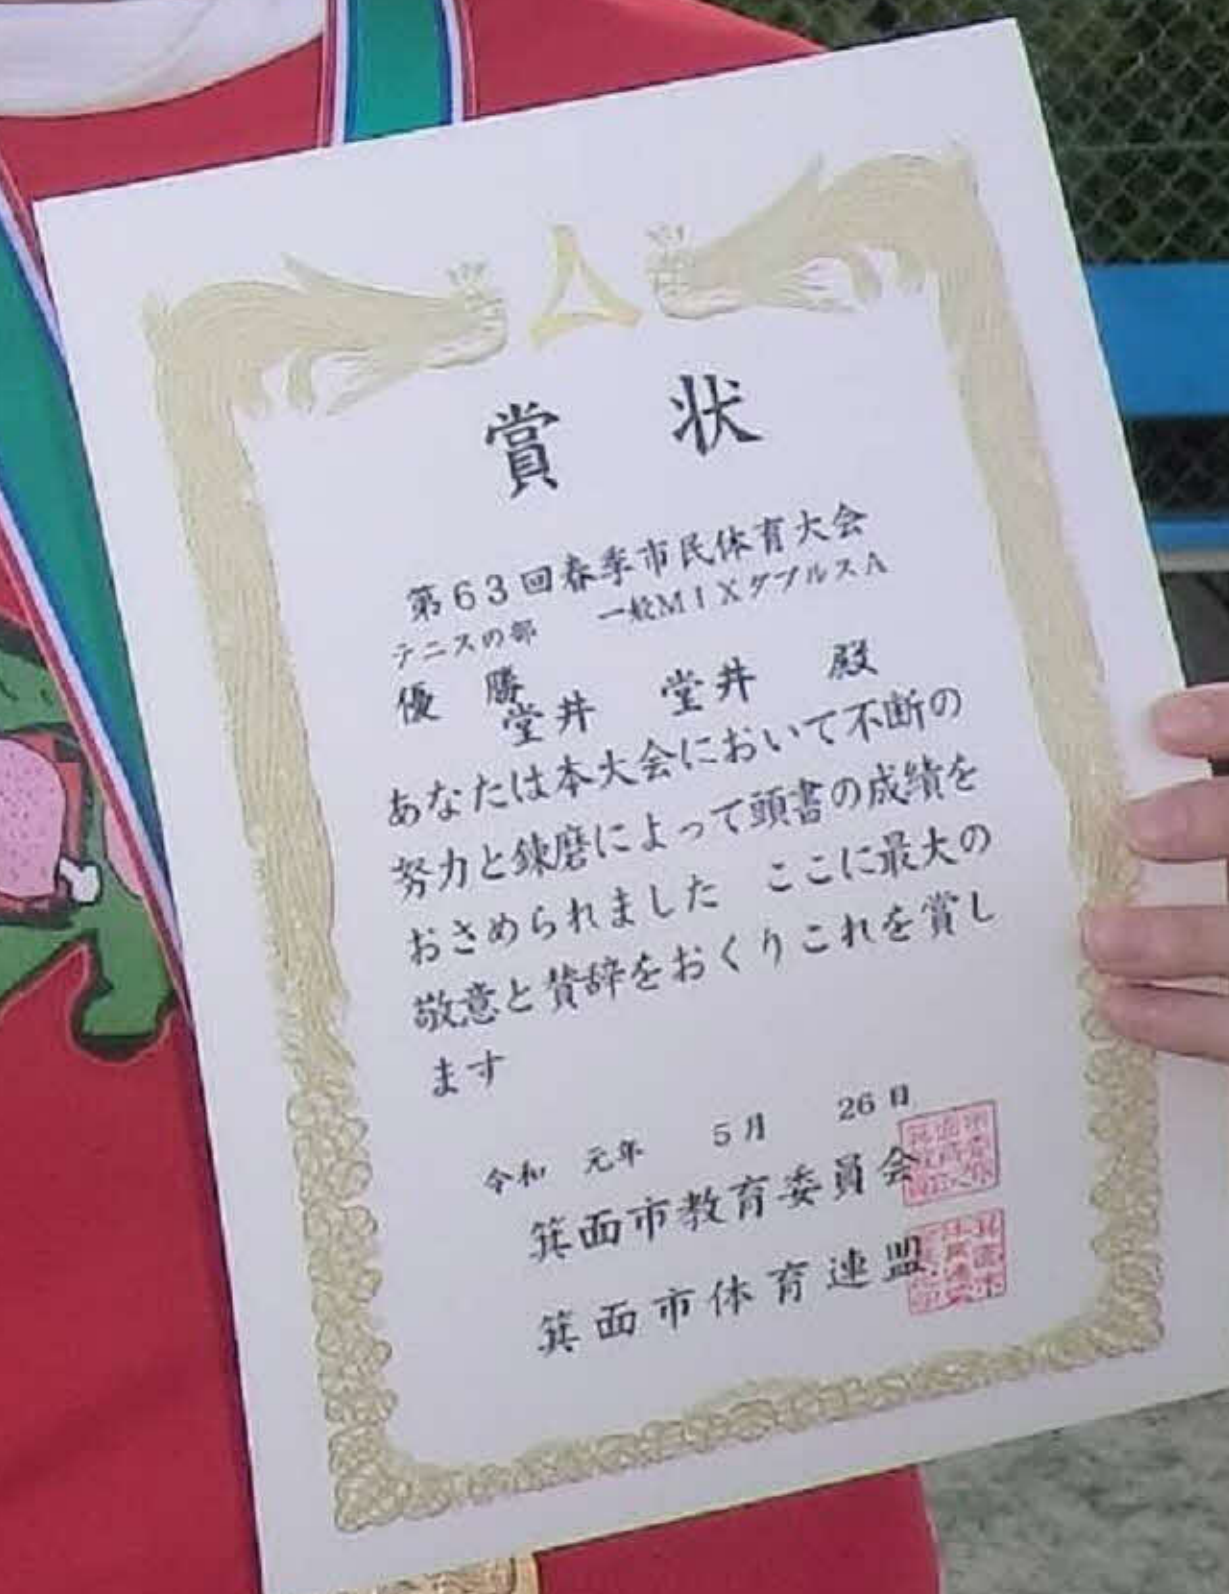 賞状
第63回春季市民体育大会
テニスの部 一般MIXダブルスA
優勝
堂井 堂井 殿
あなたは本大会において不断の
努力と錬磨によって頭書の成績を
おさめられました ここに最大の
敬意と賛辞をおくりこれを賞し
ます
令和 元年 5月 26日
箕面市教育委員会
箕面市体育連盟